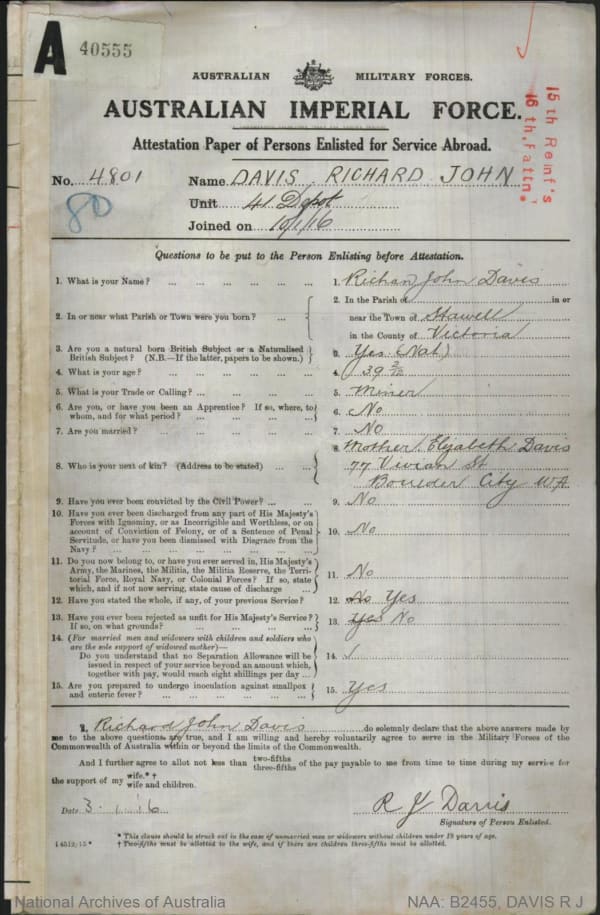 A 40555
AUSTRALIAN MILITARY FORCES.
AUSTRALIAN IMPERIAL FORCE.
Attestation Paper of Persons Enlisted for Service Abroad.
15th Reinf's
16th. Battn.
No. 4801 Name DAVIS RICHARD JOHN
80
Unit 41 Depot
Joined on 10/1/16
Questions to be put to the Person Enlisting before Attestation.
1. What is your Name? ... ... ... ... ... 1. Richard John Davis
2. In or near what Parish or Town were you born? ... 2. In the Parish of in or
near the Town of Stawell
in the County of Victoria
3. Are you a natural born British Subject or a Naturalised
British Subject? (N.B.—If the latter, papers to be shown.) 3. Yes (Nat)
4. What is your age? ... ... ... ... ... 4. 39 3/12
5. What is your Trade or Calling? ... ... ... ... 5. Miner
6. Are you, or have you been an Apprentice? If so, where, to
whom, and for what period? ... ... ... ... 6. No
7. Are you married? ... ... ... ... ... 7. No
8. Who is your next of kin? (Address to be stated) ... ... 8. Mother Elizabeth Davis
77 Vivian St
Boulder City WA
9. Have you ever been convicted by the Civil Power? ... ... 9. No
10. Have you ever been discharged from any part of His Majesty's
Forces with Ignominy, or as Incorrigible and Worthless, or on
account of Conviction of Felony, or of a Sentence of Penal
Servitude, or have you been Dismissed with Disgrace from the
Navy? ... ... ... ... ... ... 10. No
11. Do you now belong to, or have you ever served in, His Majesty's
Army, the Marines, the Militia, the Militia Reserve, the Terri-
torial Force, Royal Navy, or Colonial Forces? If so, state
which, and if not now serving, state cause of discharge ... 11. No
12. Have you stated the whole, if any, of your previous Service? 12. No Yes
13. Have you ever been rejected as unfit for His Majesty's Service?
If so, on what grounds? ... ... ... ... 13. Yes No
14. (For married men and widowers with children and soldiers who
are the sole support of widowed mother)—
Do you understand that no Separation Allowance will be
issued in respect of your service beyond an amount which,
together with pay, would reach eight shillings per day ... 14. /
15. Are you prepared to undergo inoculation against smallpox
and enteric fever? ... ... ... ... ... 15. Yes
I, Richard John Davis do solemnly declare that the above answers made by
me to the above questions are true, and I am willing and hereby voluntarily agree to serve in the Military Forces of the
Commonwealth of Australia within or beyond the limits of the Commonwealth.
And I further agree to allot not less than two-fifths three-fifths of the pay payable to me from time to time during my service for
the support of my wife.* † wife and children.
Date 3. 1. 16 R J Davis
Signature of Person Enlisted.
* This clause should be struck out in the case of unmarried men or widowers without children under 18 years of age.
† Two-fifths must be allotted to the wife, and if there are children three-fifths must be allotted.
National Archives of Australia NAA: B2455, DAVIS R J